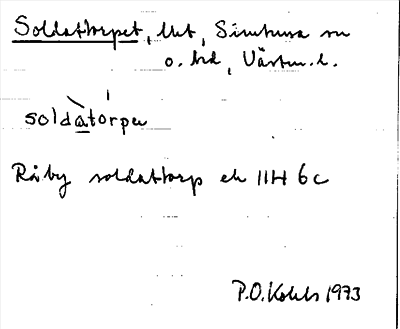 Soldattorpet, lht, Simtuna sn
o. hd, Västm. l.
soldatorpeı
Råby soldattorp ek 11H 6c
P.O. 1973